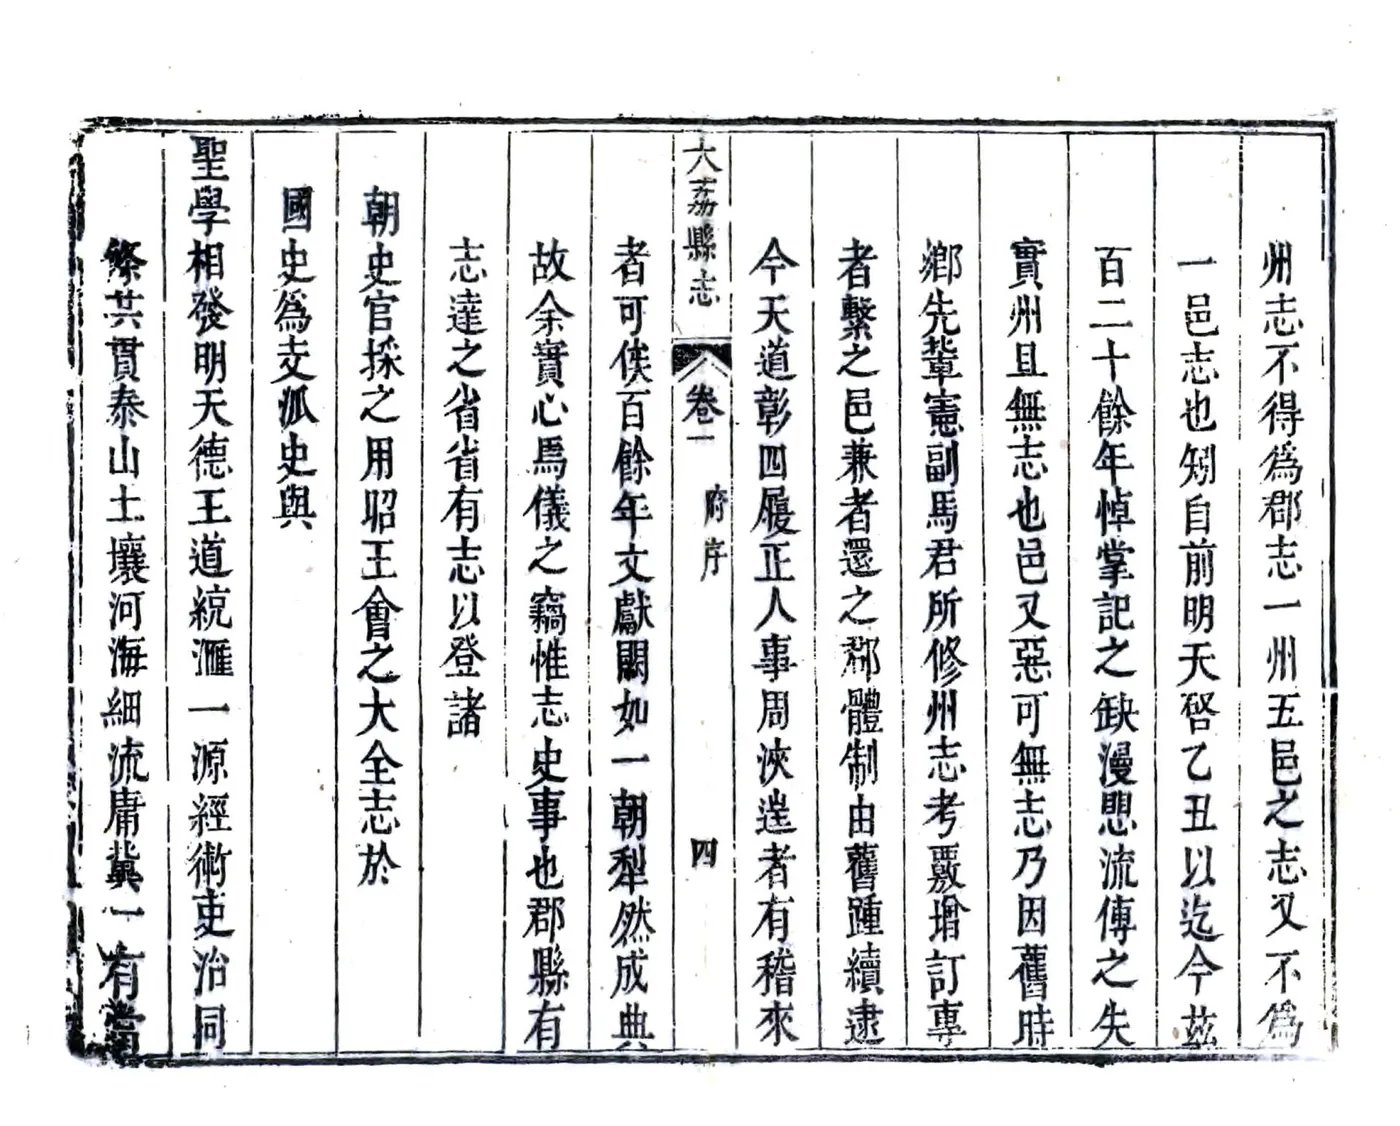 州志不得爲郡志一州五邑之志又不爲
一邑志也矧自前明天啓乙丑以迄今茲
百二十餘年悼掌記之缺漫思流傳之失
實州且無志也邑又惡可無志乃因舊時
鄉先輩憲副馬君所修州志考覈增訂專
者繫之邑兼者還之郡體制由舊踵續逮
今天道彰四履正人事周浹遑者有稽來
大荔縣志
卷一
府序
四
者可俟百餘年文獻闕如一朝犁然成典
故余實心馬儀之竊惟志史事也郡縣有
志達之省省有志以登諸
朝史官採之用昭王會之大全志於
國史爲支派史與
聖學相發明天德王道統滙一源經術吏治同
條共貫泰山土壤河海細流庸冀一有當